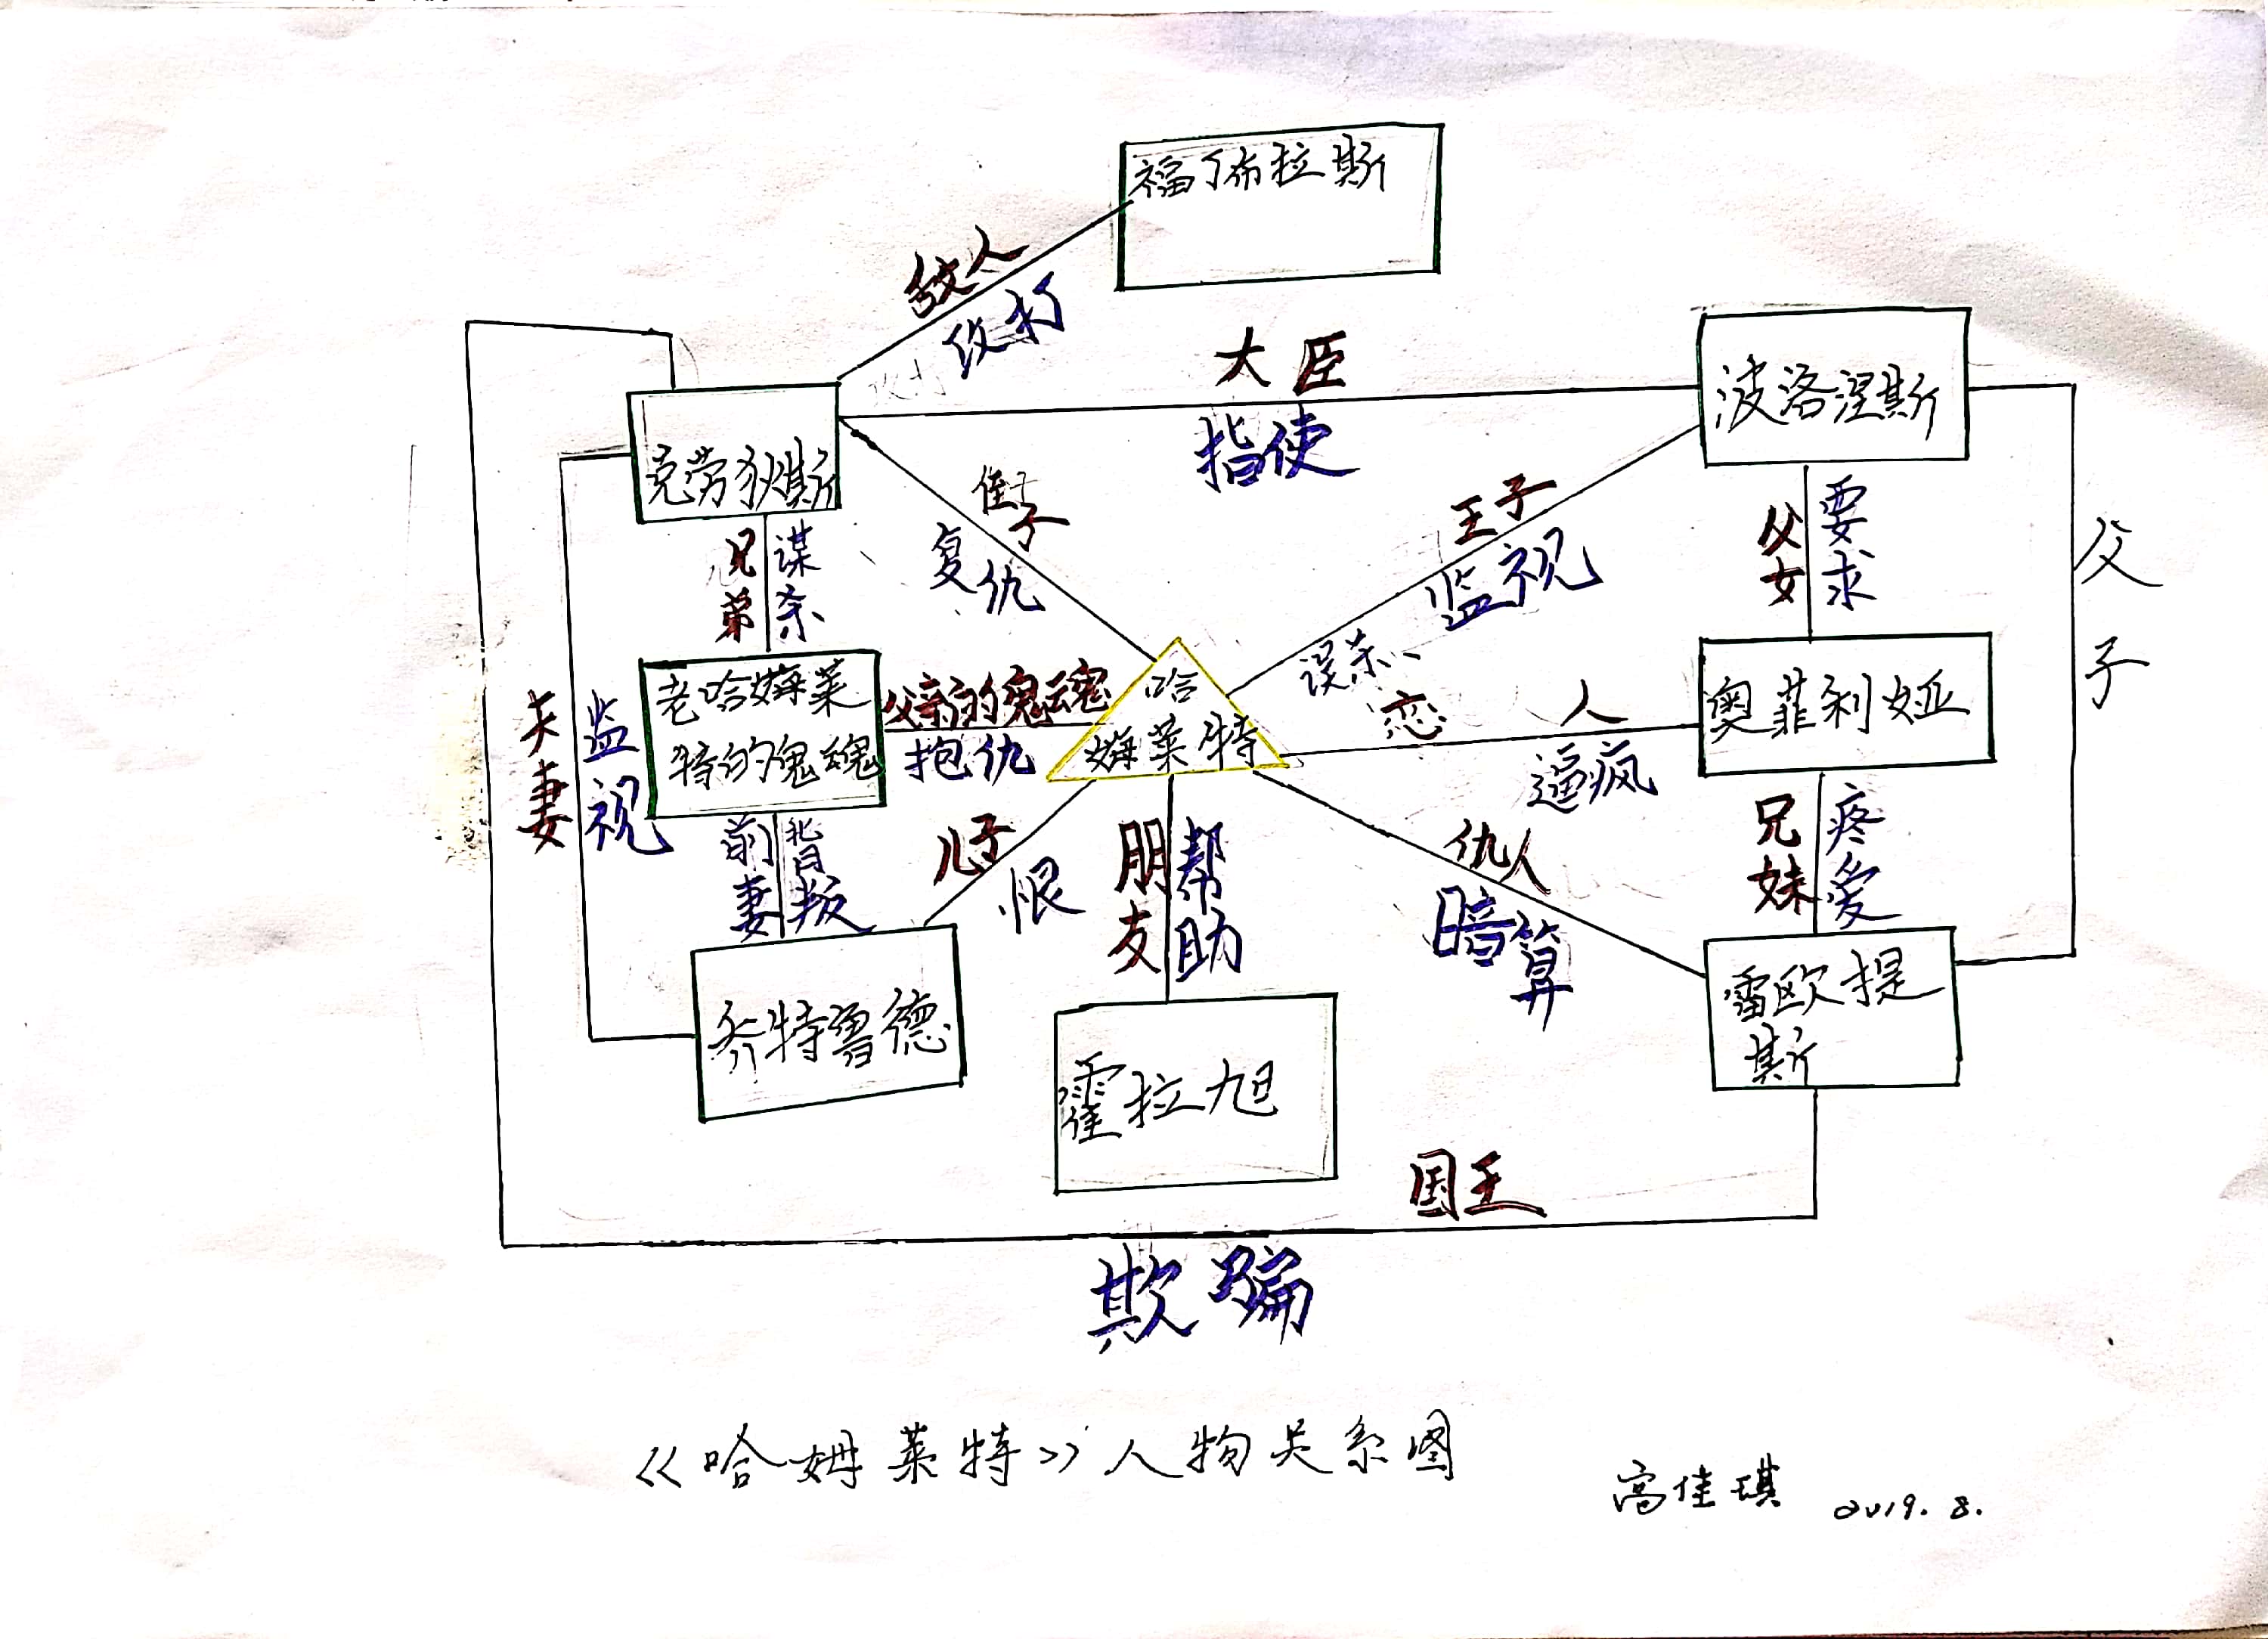 福丁布拉斯
敌人
攻打
大臣
指使
波洛涅斯
克劳狄斯
侄子
复仇
王子
监视
误杀
父女
要求
父子
兄弟
谋杀
夫妻
监视
老哈姆莱
特的鬼魂
父亲的鬼魂
抱仇
哈
姆莱特
恋人
逼疯
奥菲利娅
前妻
背叛
儿子
恨
朋友
帮助
仇人
暗算
兄妹
疼爱
乔特鲁德
霍拉旭
雷欧提
斯
国王
欺骗
《哈姆莱特》人物关系图
高佳琪 2019.8.